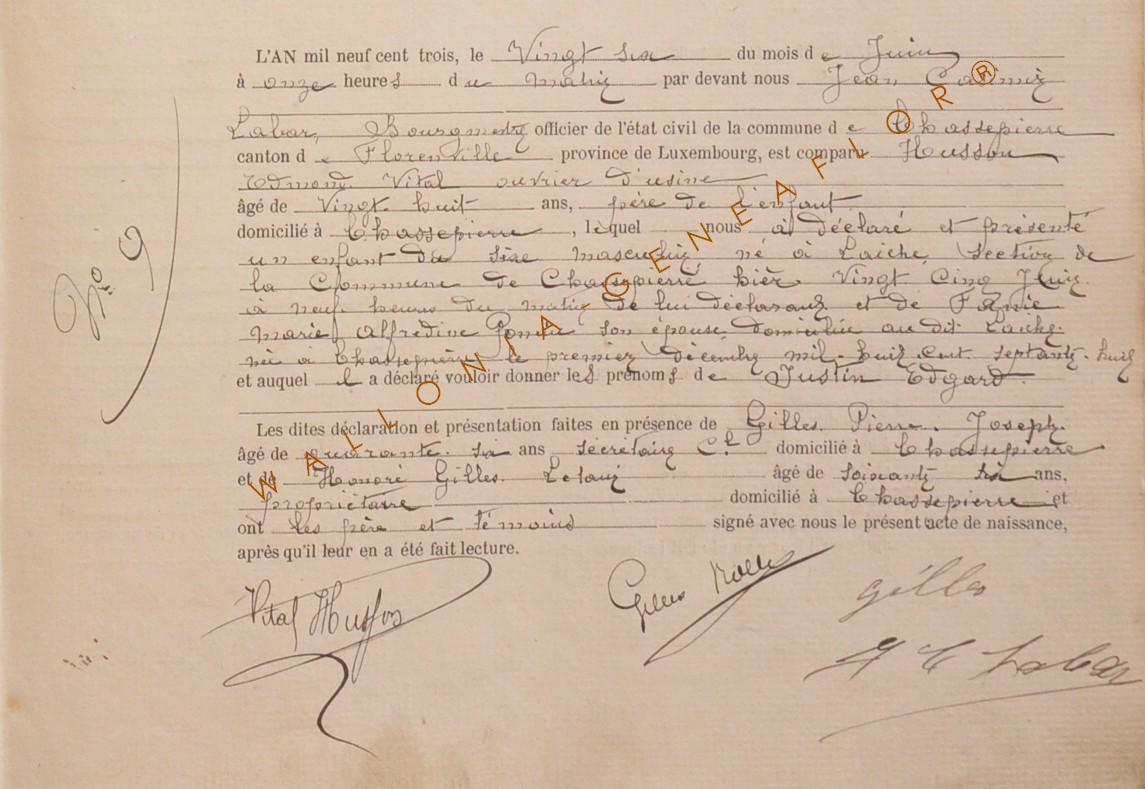 L'AN mil neuf cent trois, le Vingt six du mois de Juin
à onze heures du matin par devant nous Jean Casimir
Labar, Bourgmestre officier de l'état civil de la commune de Chassepierre
canton de Florenville province de Luxembourg, est comparu Husson
Edmond Vital ouvrier d'usine
âgé de Vingt huit ans, père de l'enfant
domicilié à Chassepierre, lequel nous a déclaré et présenté
un enfant du sexe masculin, né à Laiche, Section de
la Commune de Chassepierre hier Vingt Cinq Juin
à neuf heures du matin de lui déclarant et de
Marie Alfredine son épouse domiciliée au dit Laiche
née à Chassepierre le premier décembre mil huit cent septante huit
et auquel il a déclaré vouloir donner les prénoms de Justin Edgard.
Les dites déclaration et présentation faites en présence de Gilles Pierre Joseph
âgé de quarante six ans, secrétaire Cl domicilié à Chassepierre
et de Honoré Gilles âgé de soixante six ans,
propriétaire domicilié à Chassepierre et
ont les père et témoins signé avec nous le présent acte de naissance,
après qu'il leur en a été fait lecture.
No 9
Vital Husson
Gilles
gilles
J C Labar
WALLONIA GENEAFLOR ®